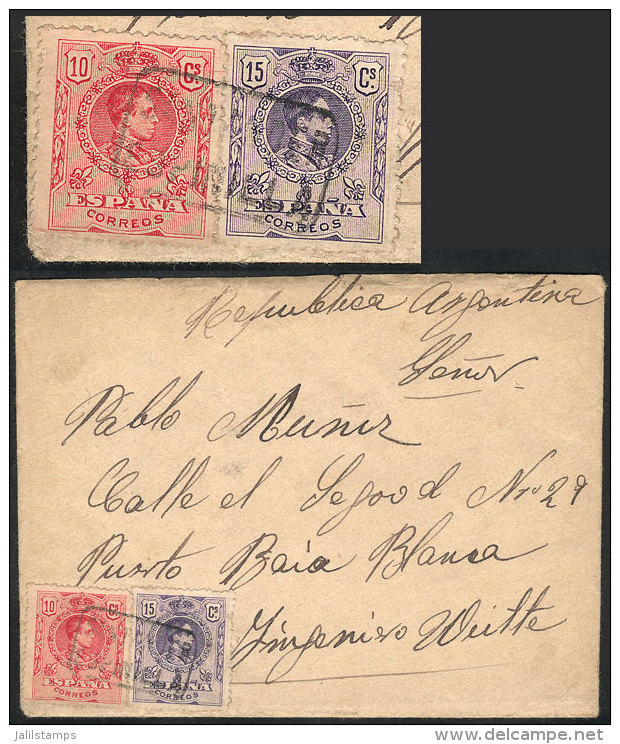 10 Cs.
ESPAÑA
CORREOS
15 Cs.
ESPAÑA
CORREOS
Republica Argentina
Señor
Pablo Muñiz
Calle el Segood Nro 29
Puerto Baia Blanca
Yingeniero Weitte
10 Cs.
ESPAÑA
CORREOS
15 Cs.
ESPAÑA
CORREOS
Jalilstamps
delcampe.net